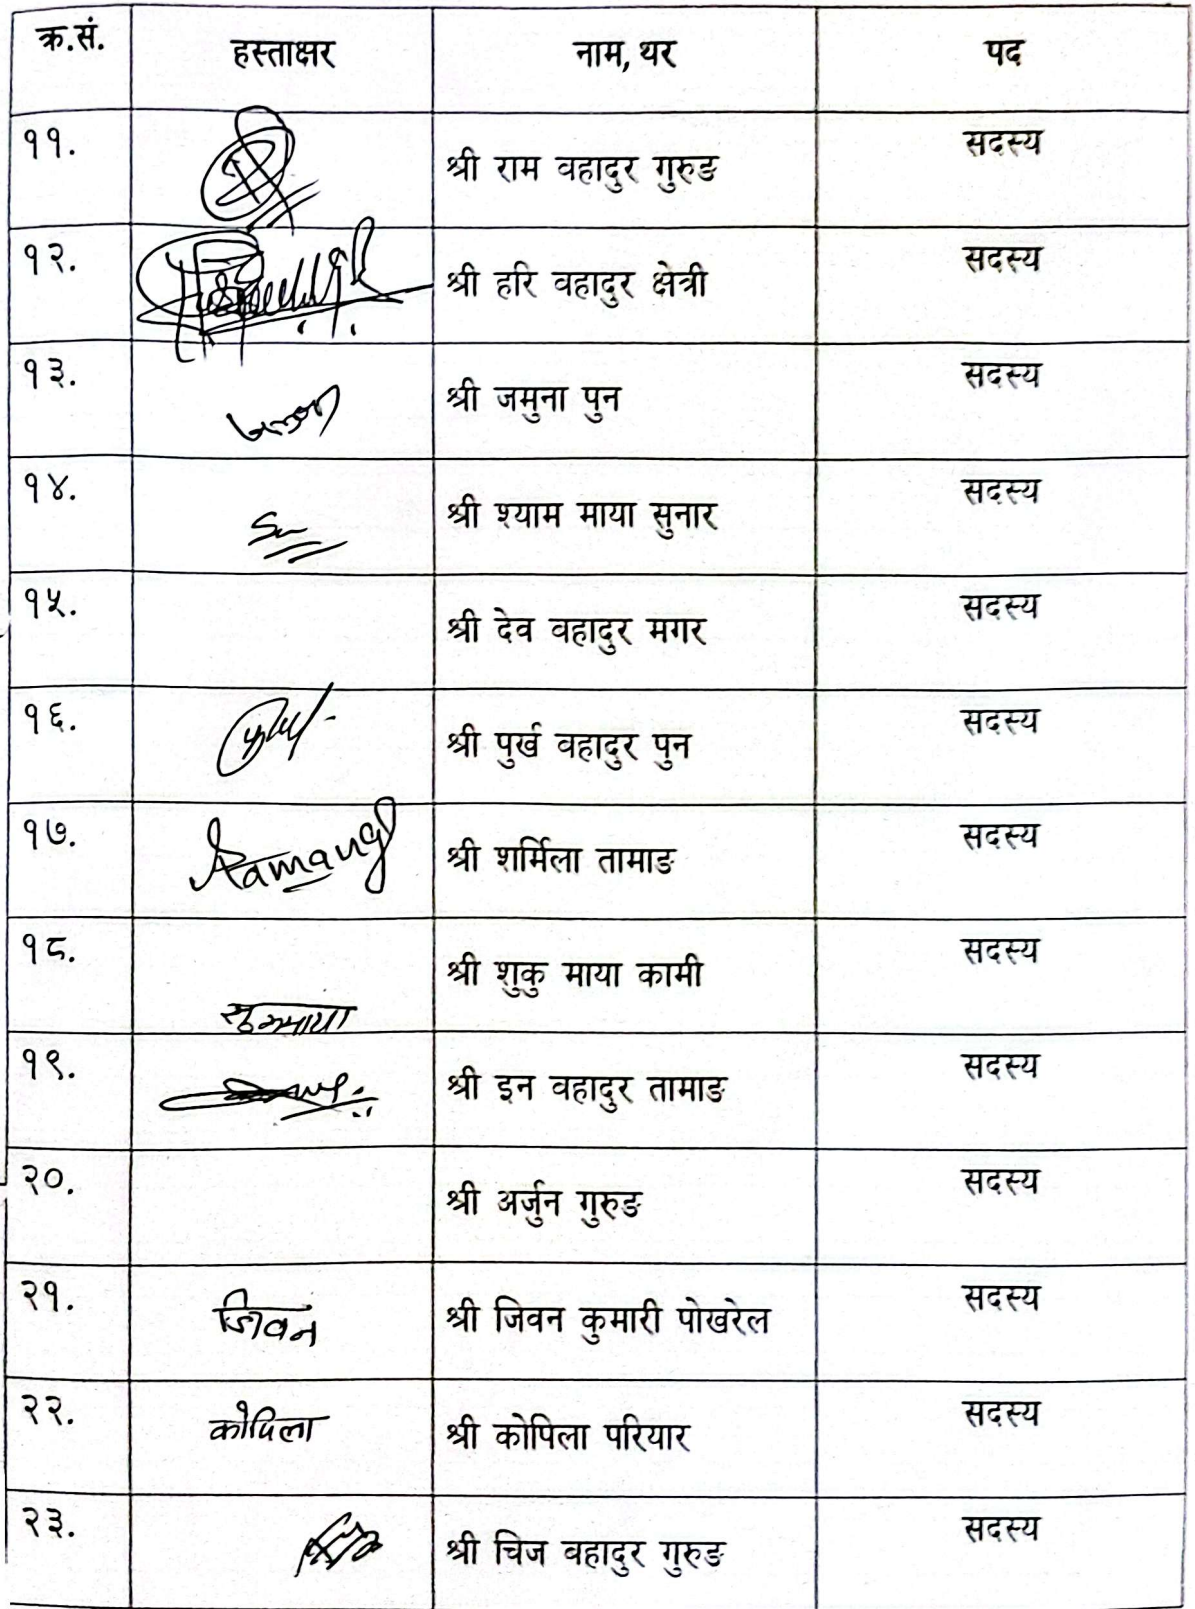 क्र.सं. हस्ताक्षर नाम, थर पद
११. श्री राम वहादुर गुरुङ सदस्य
१२. श्री हरि वहादुर क्षेत्री सदस्य
१३. श्री जमुना पुन सदस्य
१४. श्री श्याम माया सुनार सदस्य
१५. श्री देव वहादुर मगर सदस्य
१६. श्री पुर्ख वहादुर पुन सदस्य
१७. श्री शर्मिला तामाङ सदस्य
१८. श्री शुकु माया कामी सदस्य
१९. श्री इन वहादुर तामाङ सदस्य
२०. श्री अर्जुन गुरुङ सदस्य
२१. जिवन श्री जिवन कुमारी पोखरेल सदस्य
२२. कोपिला श्री कोपिला परियार सदस्य
२३. श्री चिज वहादुर गुरुङ सदस्य